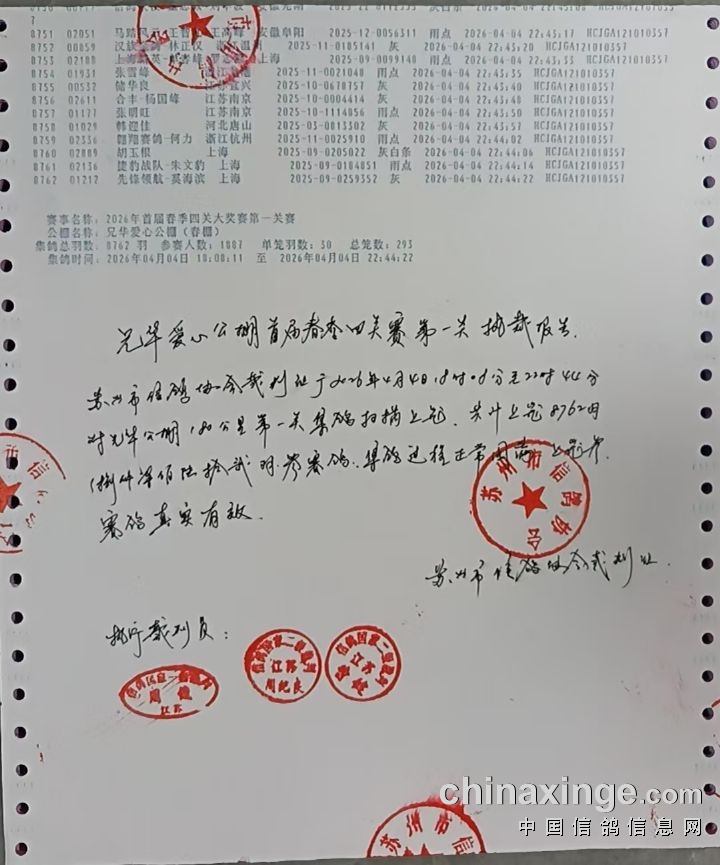 8751 02051 阜阳 2025-12-0056311 雨点 2026-04-04 22:43:17 HCJGA121010357
8752 00059 林正仪 温州 2025-11-0185141 灰 2026-04-04 22:43:20 HCJGA121010357
8753 02188 上海 2025-09-0099140 雨点 2026-04-04 22:43:33 HCJGA121010357
8754 01931 张雪峰 2025-11-0021048 雨点 2026-04-04 22:43:35 HCJGA121010357
8755 00532 储华良 宜兴 2025-10-0678757 灰 2026-04-04 22:43:40 HCJGA121010357
8756 02611 合丰-杨国峰 江苏南京 2025-10-0004414 灰 2026-04-04 22:43:48 HCJGA121010357
8757 01177 张明旺 江苏南京 2025-10-1114056 雨点 2026-04-04 22:43:50 HCJGA121010357
8758 01029 韩迎佳 河北唐山 2025-03-0813302 灰 2026-04-04 22:43:57 HCJGA121010357
8759 02336 翱翔赛鸽-何力 浙江杭州 2025-11-0025910 雨点 2026-04-04 22:44:02 HCJGA121010357
8760 02889 胡玉根 上海 2025-09-0205022 灰白条 2026-04-04 22:44:06 HCJGA121010357
8761 02136 捷豹战队-朱文豹 上海 2025-09-0184851 雨点 2026-04-04 22:44:14 HCJGA121010357
8762 01212 先锋领航-奚海滨 上海 2025-09-0259352 灰 2026-04-04 22:44:22 HCJGA121010357
赛事名称：2026年首届春季四关大奖赛第一关赛
公棚名称：兄华爱心公棚（春棚）
集鸽总羽数：8762 羽 参赛人数：1887 单笼羽数：30 总笼数：293
集鸽时间：2026年04月04日 18:08:11 至 2026年04月04日 22:44:22
兄华爱心公棚首届春季四关赛第一关执裁报告.
苏州市信鸽协会裁判处于2026年4月4日18时08分至22时44分
对兄华公棚180公里第一关集鸽扫描上笼.共计上笼8762羽
(捌仟柒佰陆拾贰羽)参赛鸽.集鸽过程正常圆满.上笼参
赛鸽真实有效.
苏州市信鸽协会
苏州市信鸽协会裁判处.
执行裁判员：
信鸽国家一级裁判
周俊
江苏
信鸽国家二级裁判
江苏
周纪良
信鸽国家二级裁判
江苏
苏州市信
chinaxinge.com
中国信鸽信息网